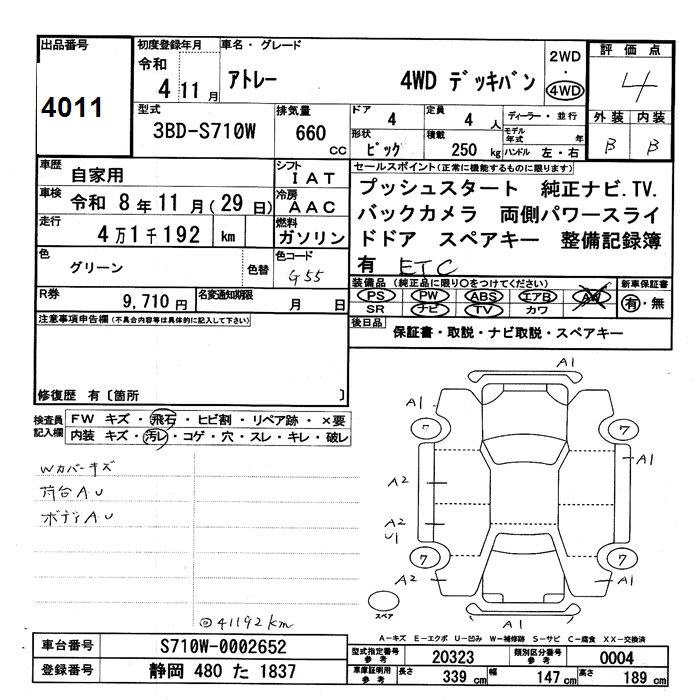 出品番号
4011
初度登録年月
令和
4 11月
車名・グレード
アトレー 4WD デッキバン
2WD
・
4WD
評価点
4
外装 内装
B B
型式
3BD-S710W
排気量
660 CC
ドア
4
定員
4 人
形状
ピック
積載
250 kg
ディーラー・並行
モデル年式 年
ハンドル 左・右
車歴
自家用
シフト
IAT
車検
令和 8年11月(29日)
冷房
AAC
走行
4万1千192 km
燃料
ガソリン
色
グリーン
色替
色コード
G55
R券
9,710円
名変通知期限
月 日
セールスポイント(正常に機能するものに限ります)
プッシュスタート 純正ナビ.TV.
バックカメラ 両側パワースライ
ドドア スペアキー 整備記録簿
有 ETC
装備品 (純正品に限り〇をつけてください)
PS PW ABS エアB AW
SR ナビ TV カワ
新車保証書
有・無
後日品
保証書・取説・ナビ取説・スペアキー
注意事項申告欄(不具合内容等は具体的に記入して下さい)
修復歴 有〔箇所 〕
検査員記入欄
FW キズ・飛石・ヒビ割・リペア跡・×要
内装 キズ・汚レ・コゲ・穴・スレ・キレ・破レ
Wカバーキズ
荷台AU
ボディAU
@41192km
A1
A1
7
7
A1
A2
A2
U1
7
7
A2
A1
A1
スペア
A-キズ E-エクボ U-凹み W-補修跡 S-サビ C-腐食 XX-交換済
車台番号
S710W-0002652
登録番号
静岡 480 た 1837
型式指定番号 参考
20323
類別区分番号 参考
0004
車庫証明用 参考
長さ 339 cm
幅 147 cm
高さ 189 cm